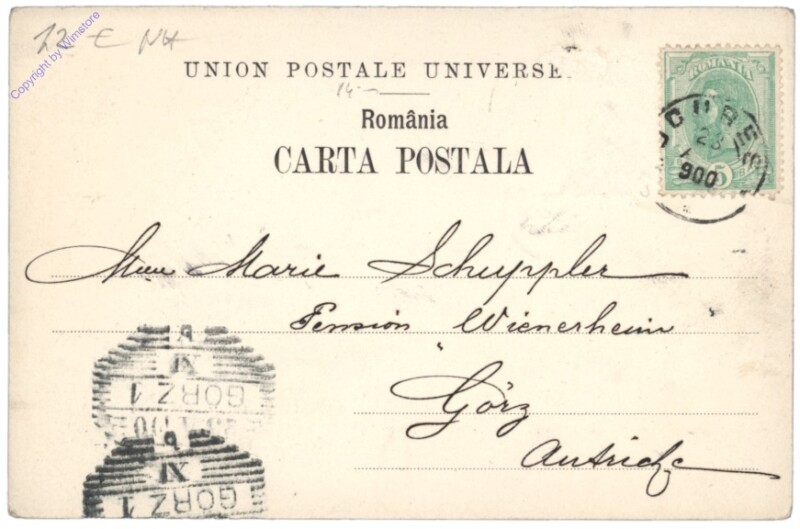 12 € NH
Copyright by Wimstore
UNION POSTALE UNIVERSE
14
România
CARTA POSTALA
ROMANIA
5
CURES
23
900
Mme Marie Schuppler
Pension "Wienerheim"
Görz
Autriche
6
XI
GÖRZ 1
00
6
XI
GÖRZ 1